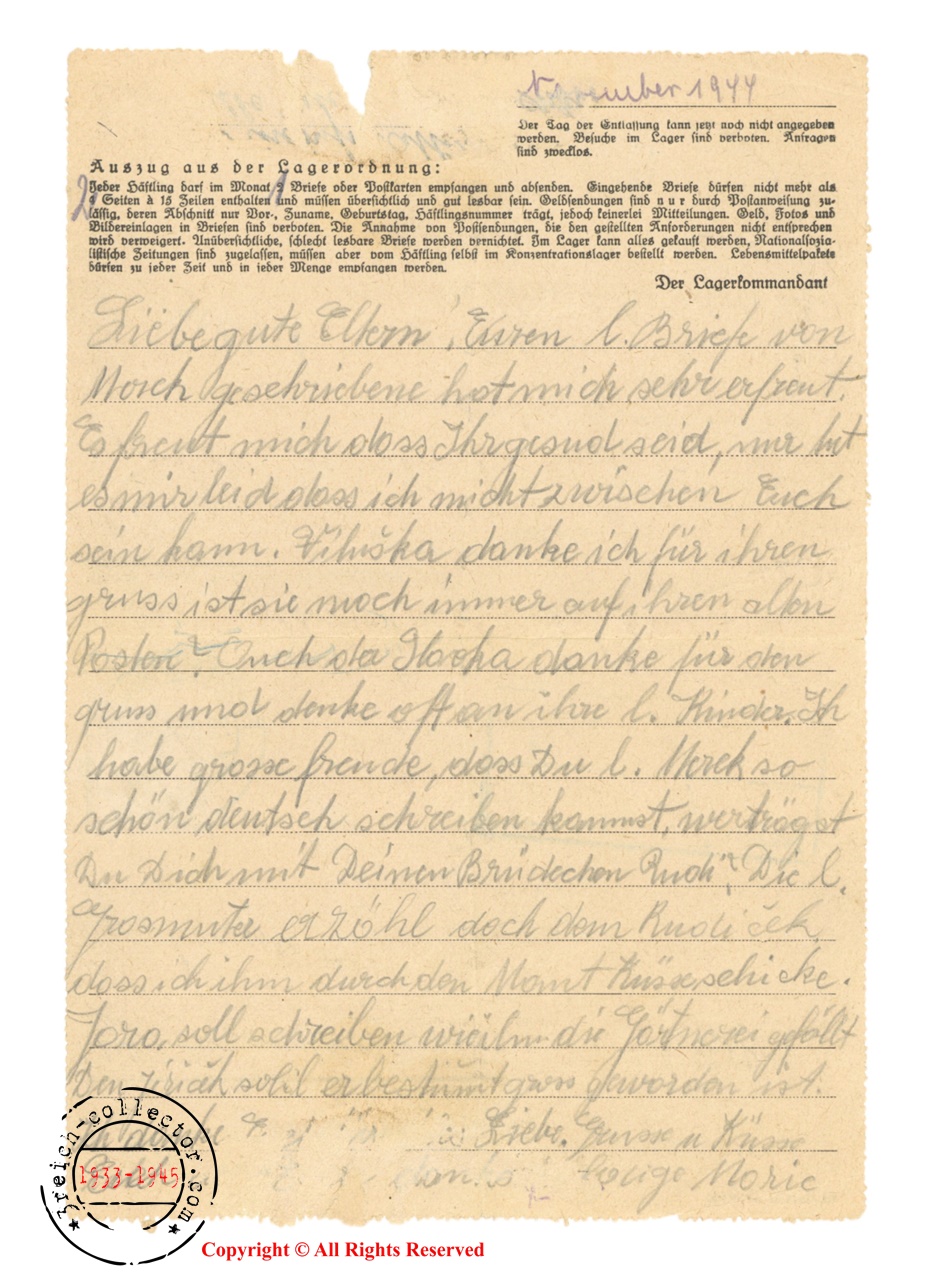 November 1944
Der Tag der Entlassung kann jetzt noch nicht angegeben
werden. Besuche im Lager sind verboten. Anfragen
sind zwecklos.
Auszug aus der Lagerordnung:
Jeder Häftling darf im Monat 2 Briefe oder Postkarten empfangen und absenden. Eingehende Briefe dürfen nicht mehr als
4 Seiten à 15 Zeilen enthalten und müssen übersichtlich und gut lesbar sein. Geldsendungen sind nur durch Postanweisung zu-
lässig, deren Abschnitt nur Vor-, Zuname, Geburtstag, Häftlingsnummer trägt, jedoch keinerlei Mitteilungen. Geld, Fotos und
Bildereinlagen in Briefen sind verboten. Die Annahme von Postsendungen, die den gestellten Anforderungen nicht entsprechen
wird verweigert. Unübersichtliche, schlecht lesbare Briefe werden vernichtet. Im Lager kann alles gekauft werden, Nationalsozia-
listische Zeitungen sind zugelassen, müssen aber vom Häftling selbst im Konzentrationslager bestellt werden. Lebensmittelpakete
dürfen zu jeder Zeit und in jeder Menge empfangen werden.
Der Lagerkommandant
Liebe gute Eltern, Euren l. Briefe von
Mrech geschriebene hat mich sehr erfreut.
Es freut mich dass Ihr gesud seid, nur tut
es mir leid dass ich nicht zwischen Euch
sein kann. Viluška danke ich für ihren
gruss ist sie noch immer auf ihren alten
Posten? Auch der danke für den
gruss und denke oft an ihre l. Kinder. Ich
habe grosse freude, dass Du l. Mrek so
schön deutsch schreiben kannst, werträgst
Du Dich mit Deinen Brüdechen Rudi? Die l.
Grosmuter erzöhl doch dem Rudiček
dass ich ihm durch den Momt Küsse schicke.
Jara soll schreiben wie ihm die Gärtnerei gefällt
Den Jiriček soll er bestimt gross geworden ist.
Liebe. Grusse u Küsse
Marie
3reich-collector.com
1933-1945
Copyright © All Rights Reserved